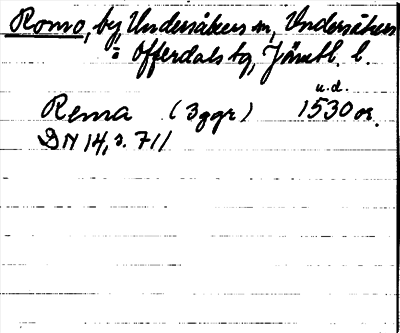 Romo, by, Undersåkers sn, Undersåkers
o Offerdals tg, Jämtl. l.
u.d.
Rema (3 ggr) 1530 or.
DN 14, s. 711